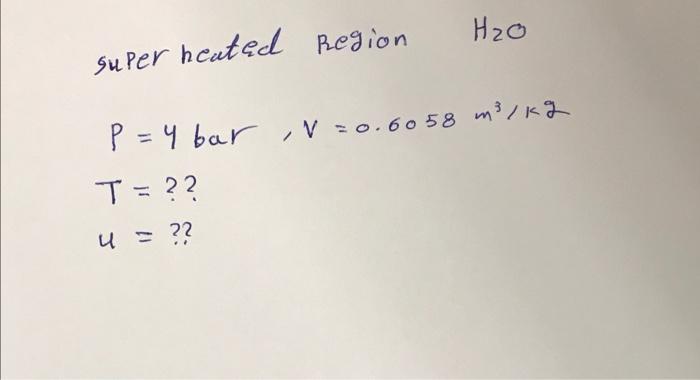 super heated Region H2O
P = 4 bar , V = 0.6058 m³/kg
T = ??
u = ??